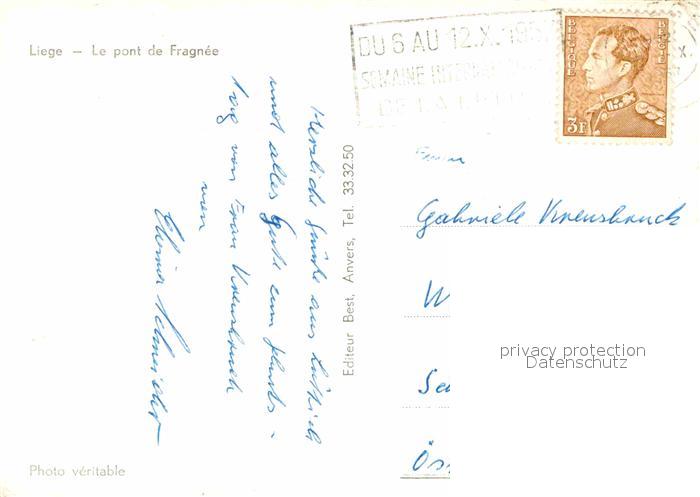 Liege — Le pont de Fragnée
DU 6 AU 12.X.195
SEMAINE INTERNA
DE LA
BELGIQUE
BELGIE
3F
Herzliche Grüße aus Lüttich
und alles Gute zum Geburts-
tag von Frau Kreusbruck
Werner Schneider
Editeur Best, Anvers, Tel. 33.32.50
Frau
Gabriele Kreusbruck
W
Se
Ös
privacy protection
Datenschutz
Photo véritable